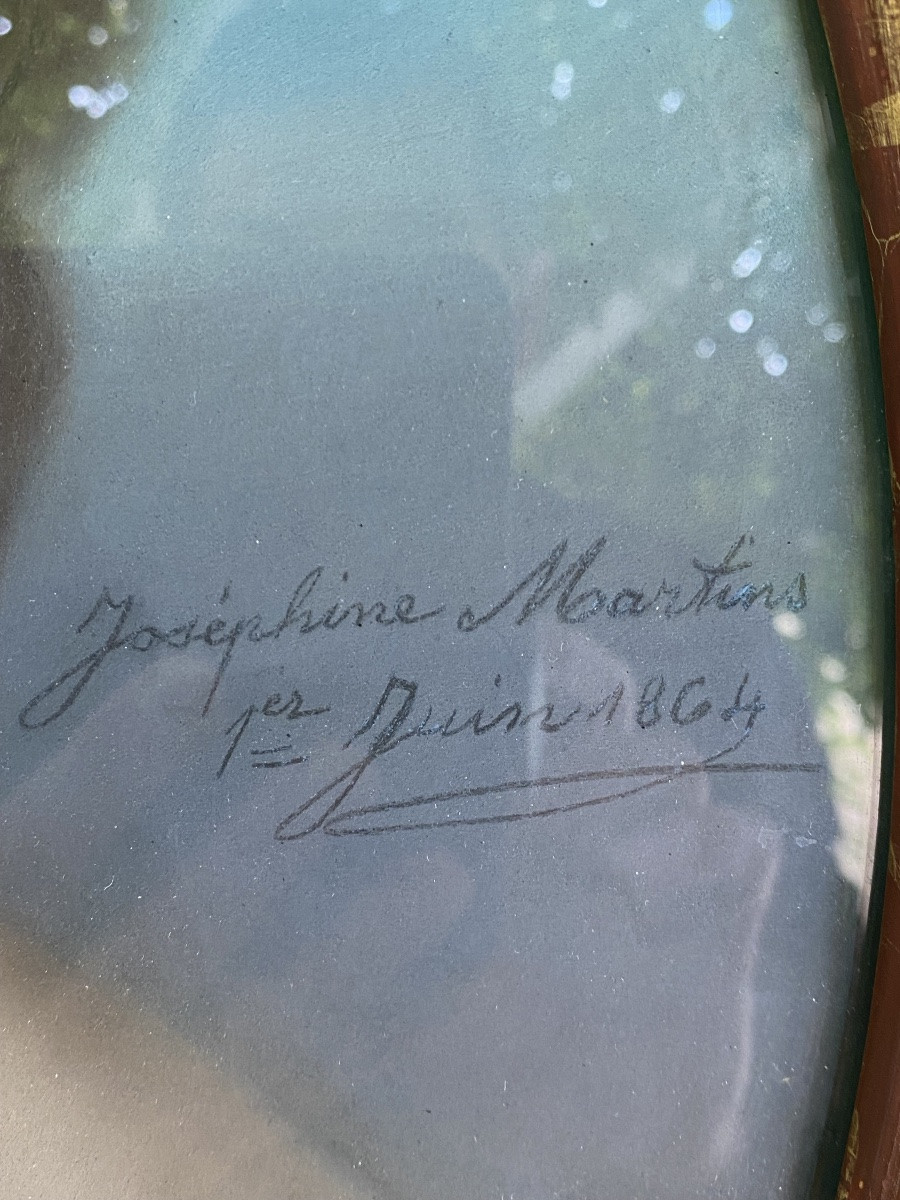 Joséphine Martins
1er Juin 1864